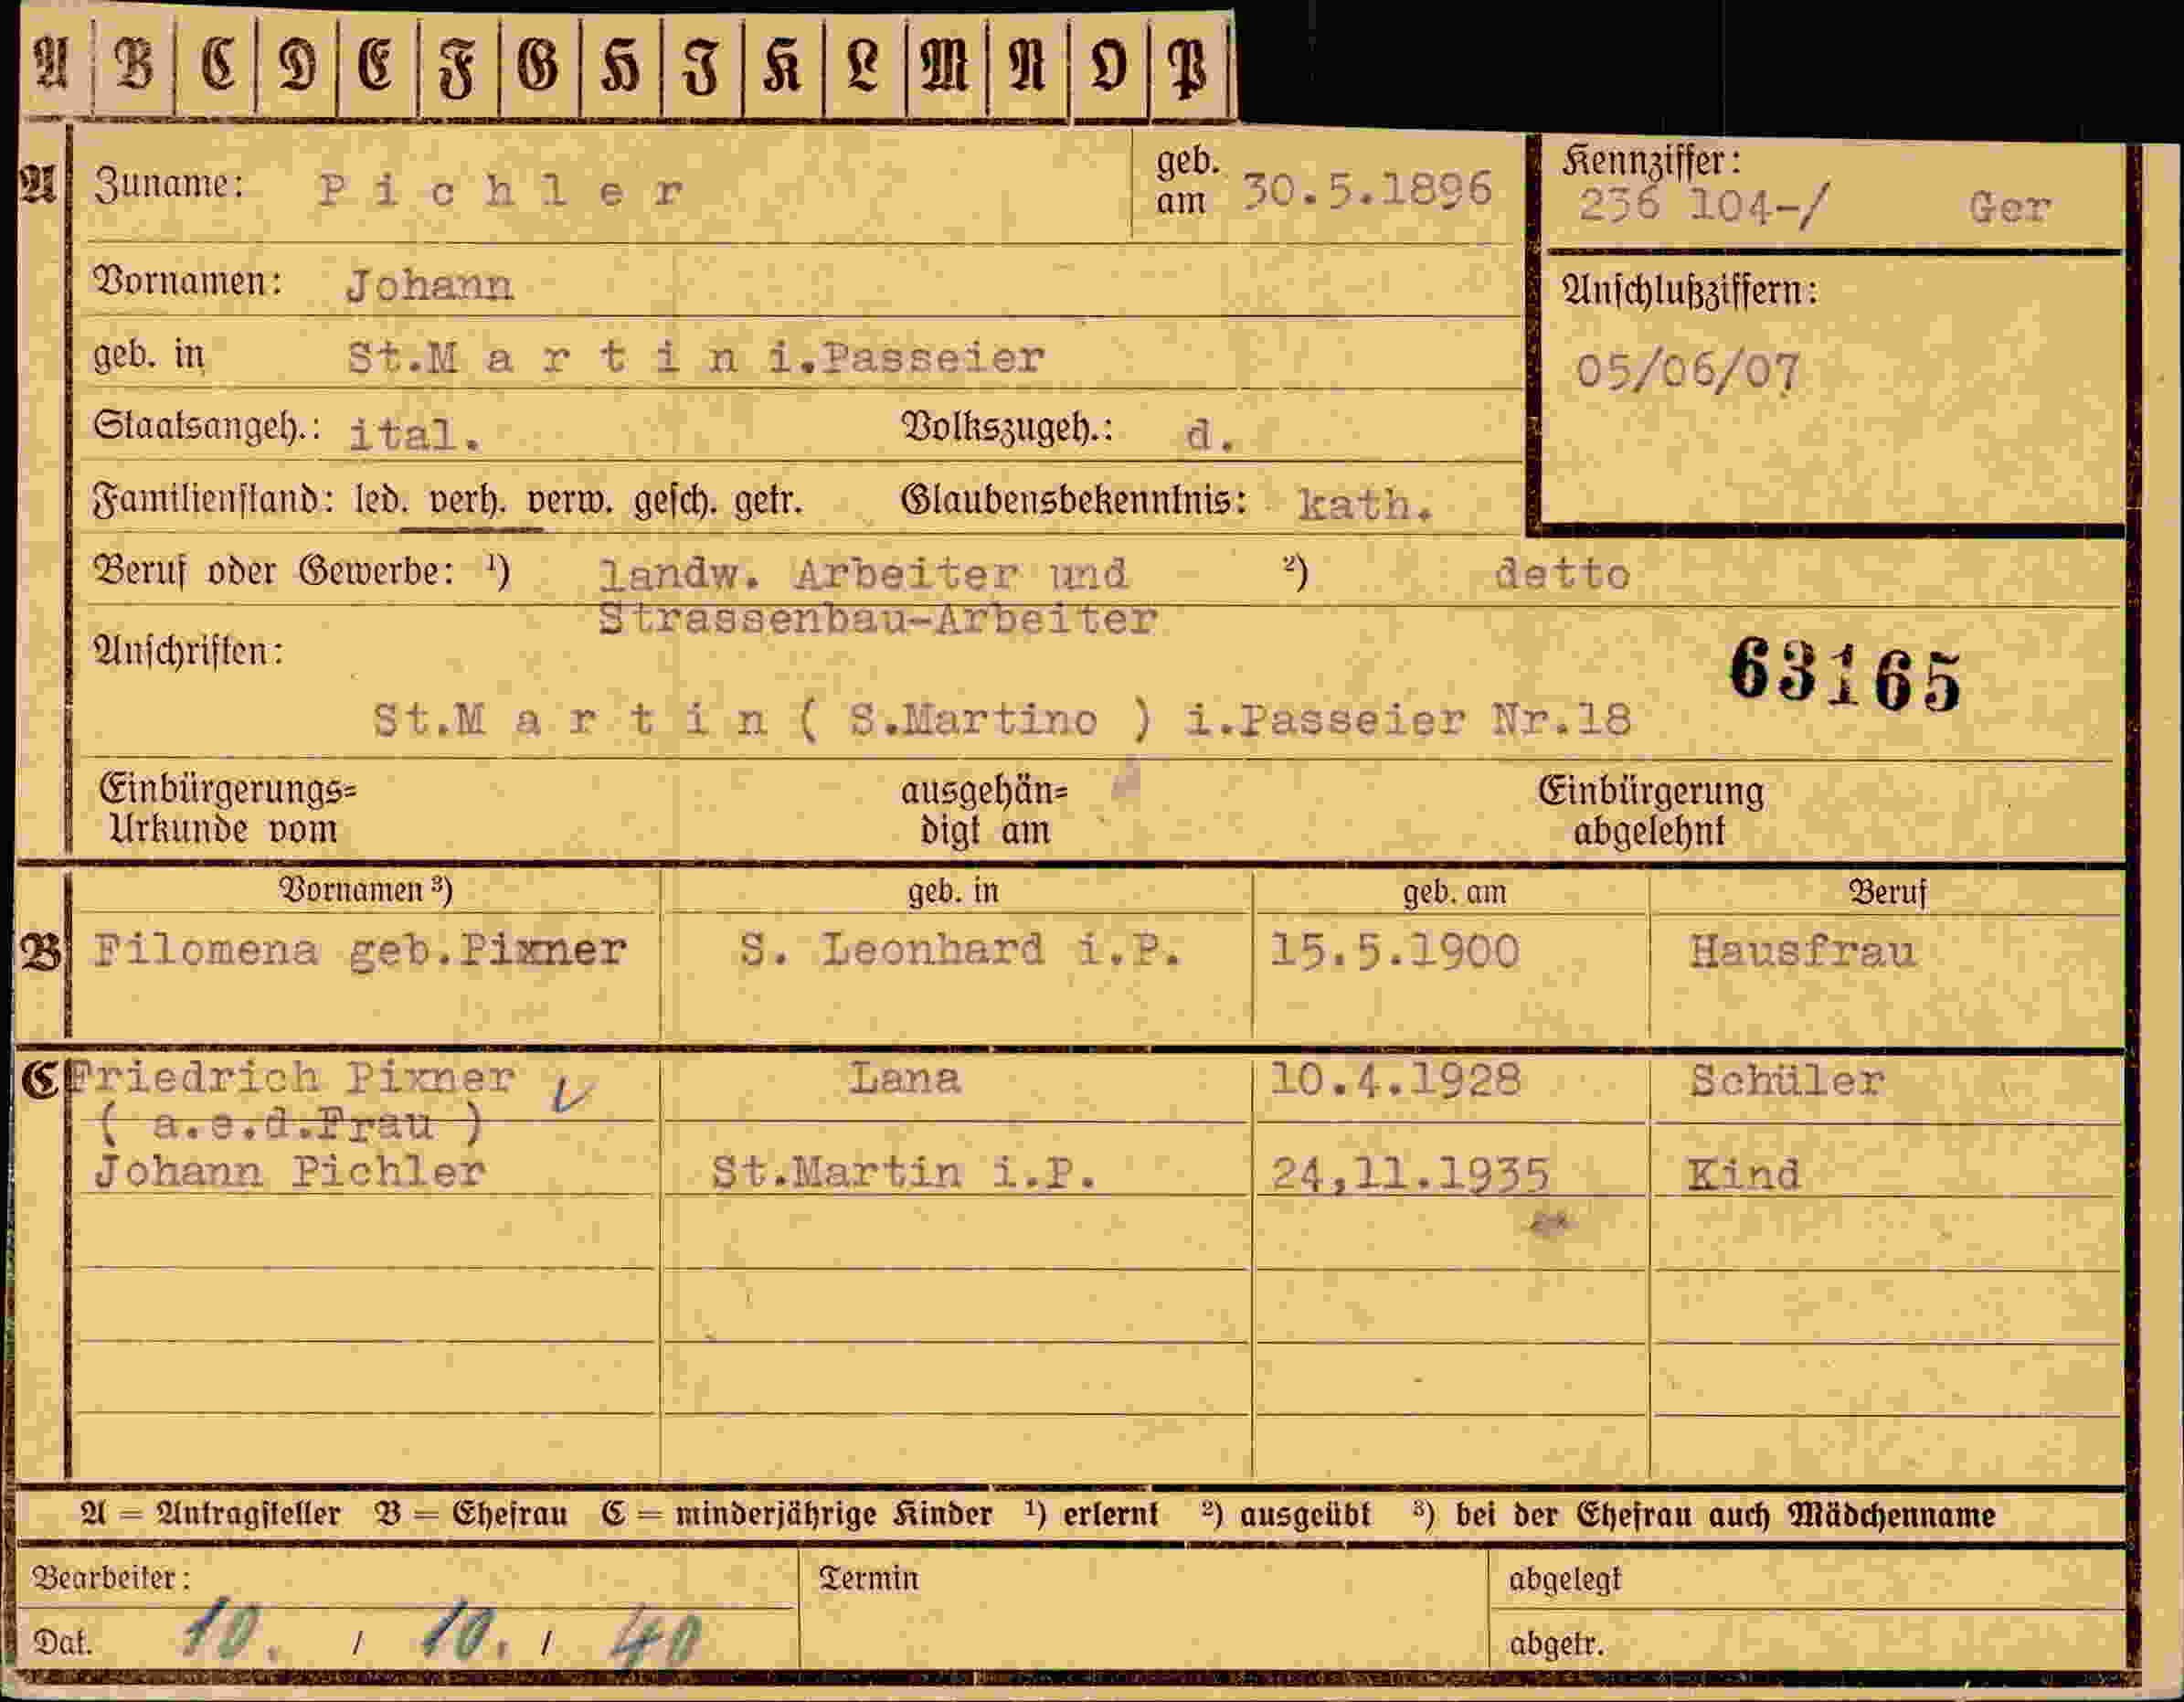 A B C D E F G H I K L M N O P
A Zuname: Pichler geb. am 30.5.1896
Kennziffer: 236 104-/ Ger
Vornamen: Johann
Anschlußziffern:
geb. in St.Martin i.Passeier
05/06/07
Staatsangeh.: ital. Volkszugeh.: d.
Familienstand: led. verh. verw. gesch. getr. Glaubensbekenntnis: kath.
Beruf oder Gewerbe: ¹) landw. Arbeiter und ²) detto
Strassenbau-Arbeiter
Anschriften:
63165
St.Martin ( S.Martino ) i.Passeier Nr.18
Einbürgerungs= ausgehän= Einbürgerung
Urkunde vom digt am abgelehnt
Vornamen ³) geb. in geb. am Beruf
B Filomena geb.Pixner S. Leonhard i.P. 15.5.1900 Hausfrau
C Friedrich Pixner Lana 10.4.1928 Schüler
( a.e.d.Frau )
Johann Pichler St.Martin i.P. 24,11.1935 Kind
A = Antragsteller B = Ehefrau C = minderjährige Kinder ¹) erlernt ²) ausgeübt ³) bei der Ehefrau auch Mädchenname
Bearbeiter: Termin abgelegt
Dat. 10. / 10. / 40 abgetr.